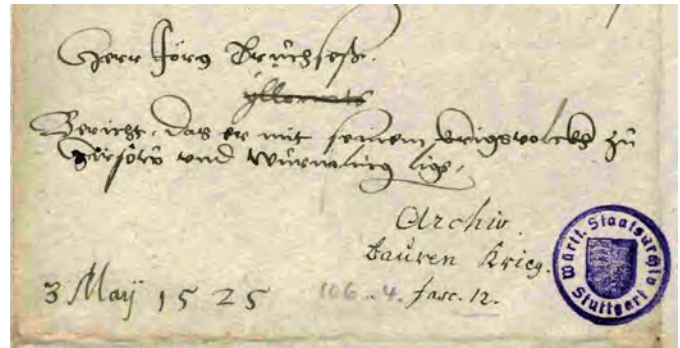 Herr Jörg Trůchseß.
Bericht, das er mit seinem krigsvolckh zů
Hirsow vnd Würmling lige,
Archiv.
Bauren Krieg.
3 Maÿ 1525 106.. 4. fasc. 12.
Württ. Staatsarchiv Stuttgart